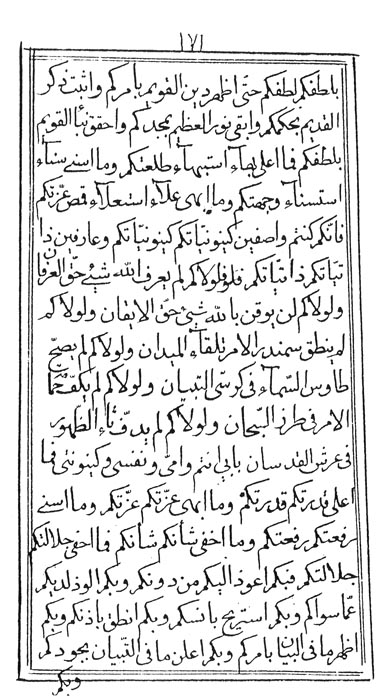 ١٧١
بلطفكم لطفكم حتى اظهر دين القويم بأمركم واثبت ذكر
القديم بحكمكم وابقى نور العظيم بمجدكم واحقق نبأ القويم
بلطفكم فما اعلى بهاء استبهاء طلعتكم وما اسنى سناء
استسناء وجهتكم وما ابهى علاء استعلاء قمص عزتكم
فانكم كنتم واصفين كينونياتكم كينونياتكم وعارفين ذا
تياتكم ذاتياتكم فلولاكم لم يعرف الله شيء حق العرفان
ولولاكم لن يوقن بالله شيء حق الايقان ولولاكم
لم ينطق سمندر الامر تلقاء الميدان ولولاكم لم يصح
طاوس السماء فى كرسى التبيان ولولاكم لم يكف
الامر فى طرز السبحان ولولاكم لم يدف الظهور
فى عرش القدسان بابى انتم وامى ونفسى وكينونتى فما
اعلى قدرتكم قدرتكم وما ابهى عزتكم عزتكم وما اسنى
رفعتكم رفعتكم وما اخفى شأنكم شأنكم فما اخفى جلالتكم
جلالتكم فبكم اعوذ اليكم من دونكم وبكم الوذ لديكم
عما سواكم وبكم استريح بانسكم وبكم انطق باذنكم وبكم
اظهر ما فى البيان بامركم وبكم اعلن ما فى التبيان بجودكم
وبكم